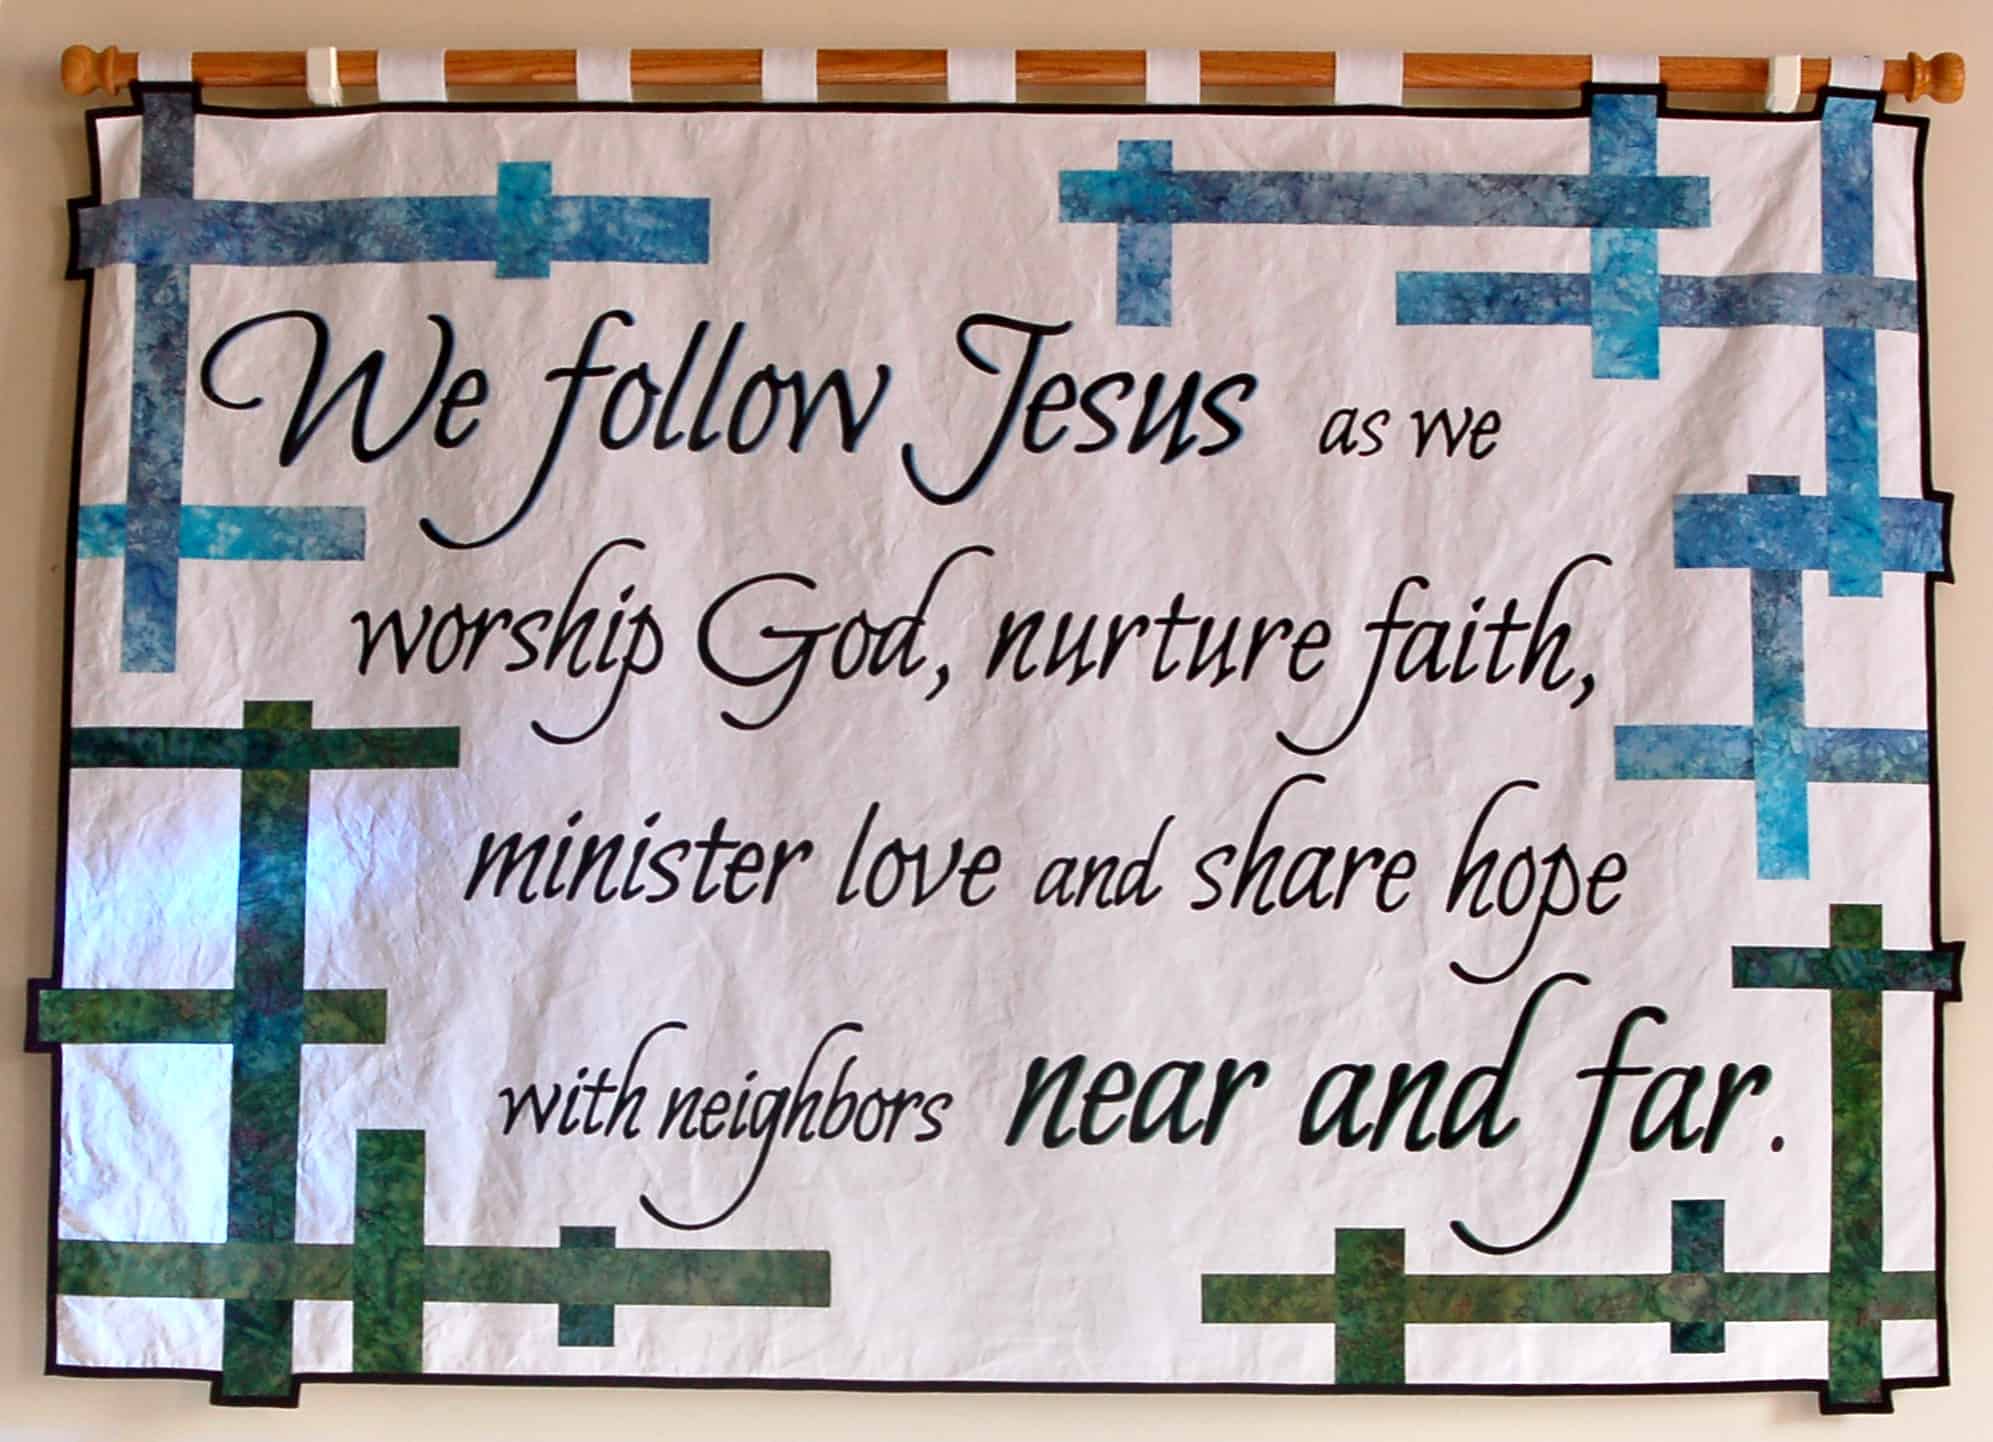 We follow Jesus as we
worship God, nurture faith,
minister love and share hope
with neighbors near and far.